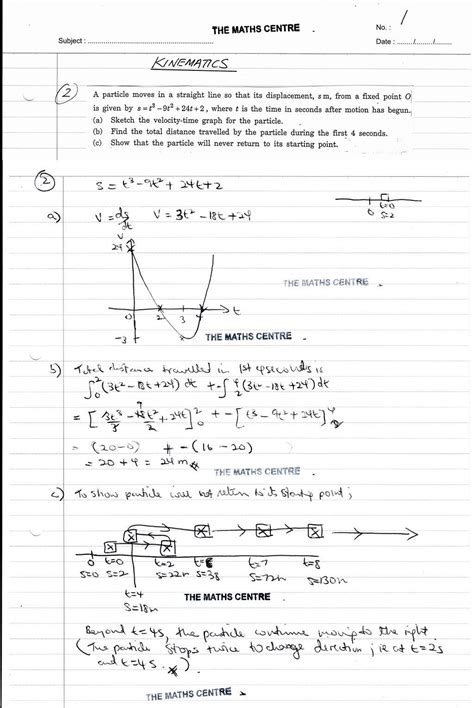 THE MATHS CENTRE .
No. : 1
Subject : ........................................
Date : ......../......../........
KINEMATICS
2 A particle moves in a straight line so that its displacement, s m, from a fixed point O
is given by s = t³ − 9t² + 24t + 2, where t is the time in seconds after motion has begun.
(a) Sketch the velocity-time graph for the particle.
(b) Find the total distance travelled by the particle during the first 4 seconds.
(c) Show that the particle will never return to its starting point.
2 s = t³ − 9t² + 24t + 2
0 t=0
s=2
a) v = ds/dt v = 3t² − 18t + 24
v
24
THE MATHS CENTRE .
0 2 3 4 t
−3
THE MATHS CENTRE .
b) Total distance travelled in 1st 4 seconds is
∫₀² (3t² − 18t + 24) dt + −∫₂⁴ (3t² − 18t + 24) dt
= [3t³/3 − 18t²/2 + 24t]₀² + −[t³ − 9t² + 24t]₂⁴
= (20−0) + −(16−20)
= 20 + 4 = 24 m
THE MATHS CENTRE .
c) To show particle will not return to its starting point ;
0 t=0 t=2 t=6 t=7 t=8
s=0 s=2 s=22m s=38 s=72m s=130m
t=4
s=18m
THE MATHS CENTRE .
Beyond t=4s, the particle continue moving to the right.
(The particle stops twice to change direction ; ie at t=2s
and t=4s.)
THE MATHS CENTRE